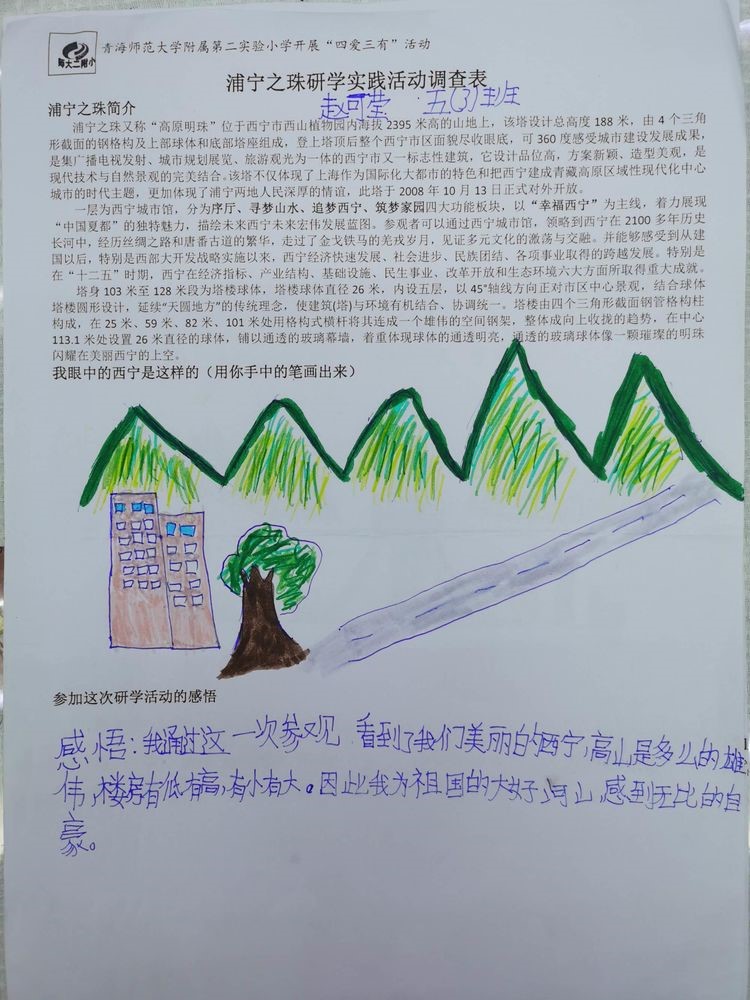 青海师范大学附属第二实验小学开展“四爱三有”活动
师大二附小
浦宁之珠研学实践活动调查表
赵可莹 五(3)班
浦宁之珠简介
浦宁之珠又称“高原明珠”位于西宁市西山植物园内海拔 2395 米高的山地上，该塔设计总高度 188 米，由 4 个三角
形截面的钢格构及上部球体和底部塔座组成，登上塔顶后整个西宁市区面貌尽收眼底，可 360 度感受城市建设发展成果，
是集广播电视发射、城市规划展览、旅游观光为一体的西宁市又一标志性建筑，它设计品位高，方案新颖、造型美观，是
现代技术与自然景观的完美结合。该塔不仅体现了上海作为国际化大都市的特色和把西宁建成青藏高原区域性现代化中心
城市的时代主题，更加体现了浦宁两地人民深厚的情谊，此塔于 2008 年 10 月 13 日正式对外开放。
一层为西宁城市馆，分为序厅、寻梦山水、追梦西宁、筑梦家园四大功能板块，以“幸福西宁”为主线，着力展现
“中国夏都”的独特魅力，描绘未来西宁未来宏伟发展蓝图。参观者可以通过西宁城市馆，领略到西宁在 2100 多年历史
长河中，经历丝绸之路和唐番古道的繁华，走过了金戈铁马的羌戎岁月，见证多元文化的激荡与交融。并能够感受到从建
国以后，特别是西部大开发战略实施以来，西宁经济快速发展、社会进步、民族团结、各项事业取得的跨越发展。特别是
在“十二五”时期，西宁在经济指标、产业结构、基础设施、民生事业、改革开放和生态环境六大方面所取得重大成就。
塔身 103 米至 128 米段为塔楼球体，塔楼球体直径 26 米，内设五层，以 45°轴线方向正对市区中心景观，结合球体
塔楼圆形设计，延续“天圆地方”的传统理念，使建筑(塔)与环境有机结合、协调统一。塔楼由四个三角形截面钢管格构柱
构成，在 25 米、59 米、82 米、101 米处用格构式横杆将其连成一个雄伟的空间钢架，整体成向上收拢的趋势，在中心
113.1 米处设置 26 米直径的球体，铺以通透的玻璃幕墙，着重体现球体的通透明亮，通透的玻璃球体像一颗璀璨的明珠
闪耀在美丽西宁的上空。
我眼中的西宁是这样的（用你手中的笔画出来）
参加这次研学活动的感悟
感悟：我通过这一次参观，看到了我们美丽的西宁，高山是多么的雄
伟，楼房有低有高，有小有大。因此我为祖国的大好河山，感到无比的自
豪。
1